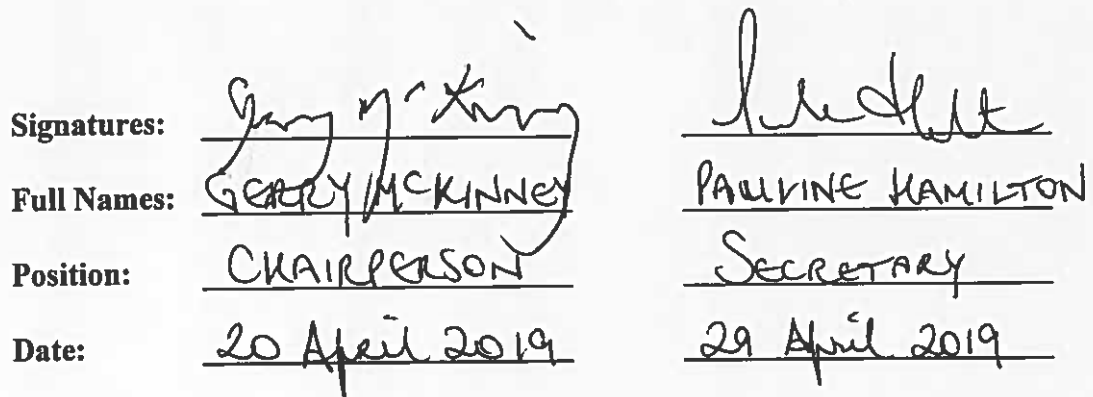 Signatures: Gerry McKinney
Full Names: GERRY MCKINNEY PAULINE HAMILTON
Position: CHAIRPERSON SECRETARY
Date: 20 April 2019 29 April 2019